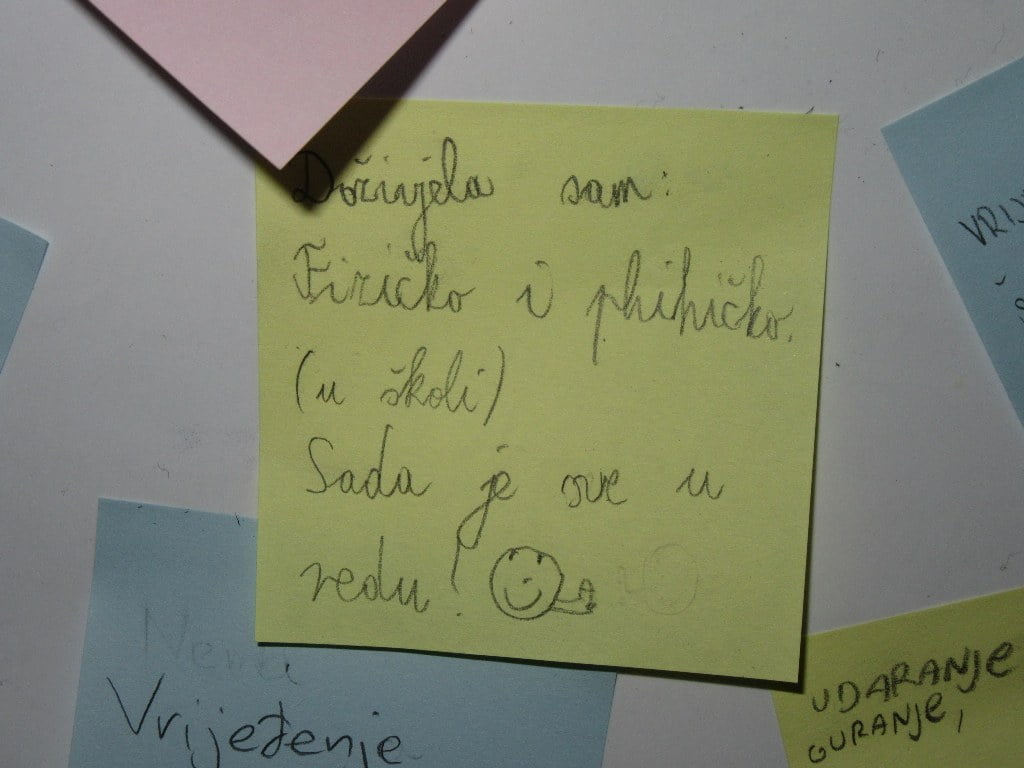 Doživjela sam:
Fizičko i phihičko.
(u školi)
Sada je sve u
redu!
Vrijeđenje
UDARANJE
GURANJE,
VRIJ